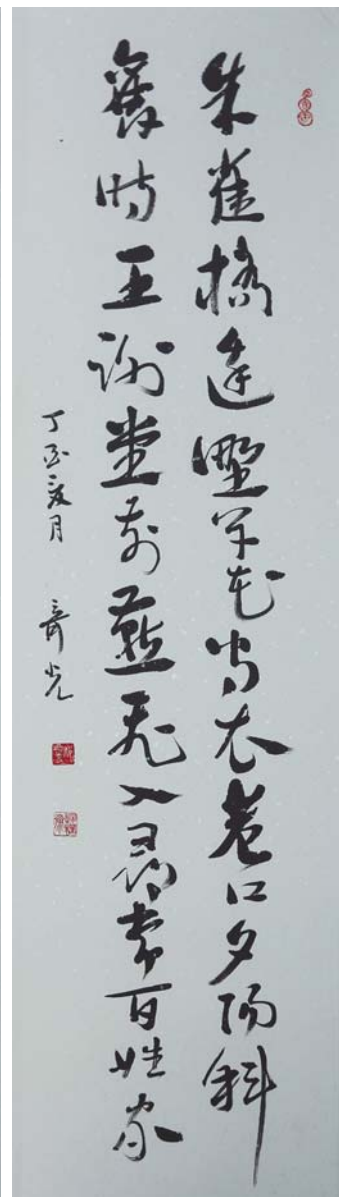 朱雀橋邊野草花烏衣巷口夕陽斜
舊時王謝堂前燕飛入尋常百姓家
丁酉夏月